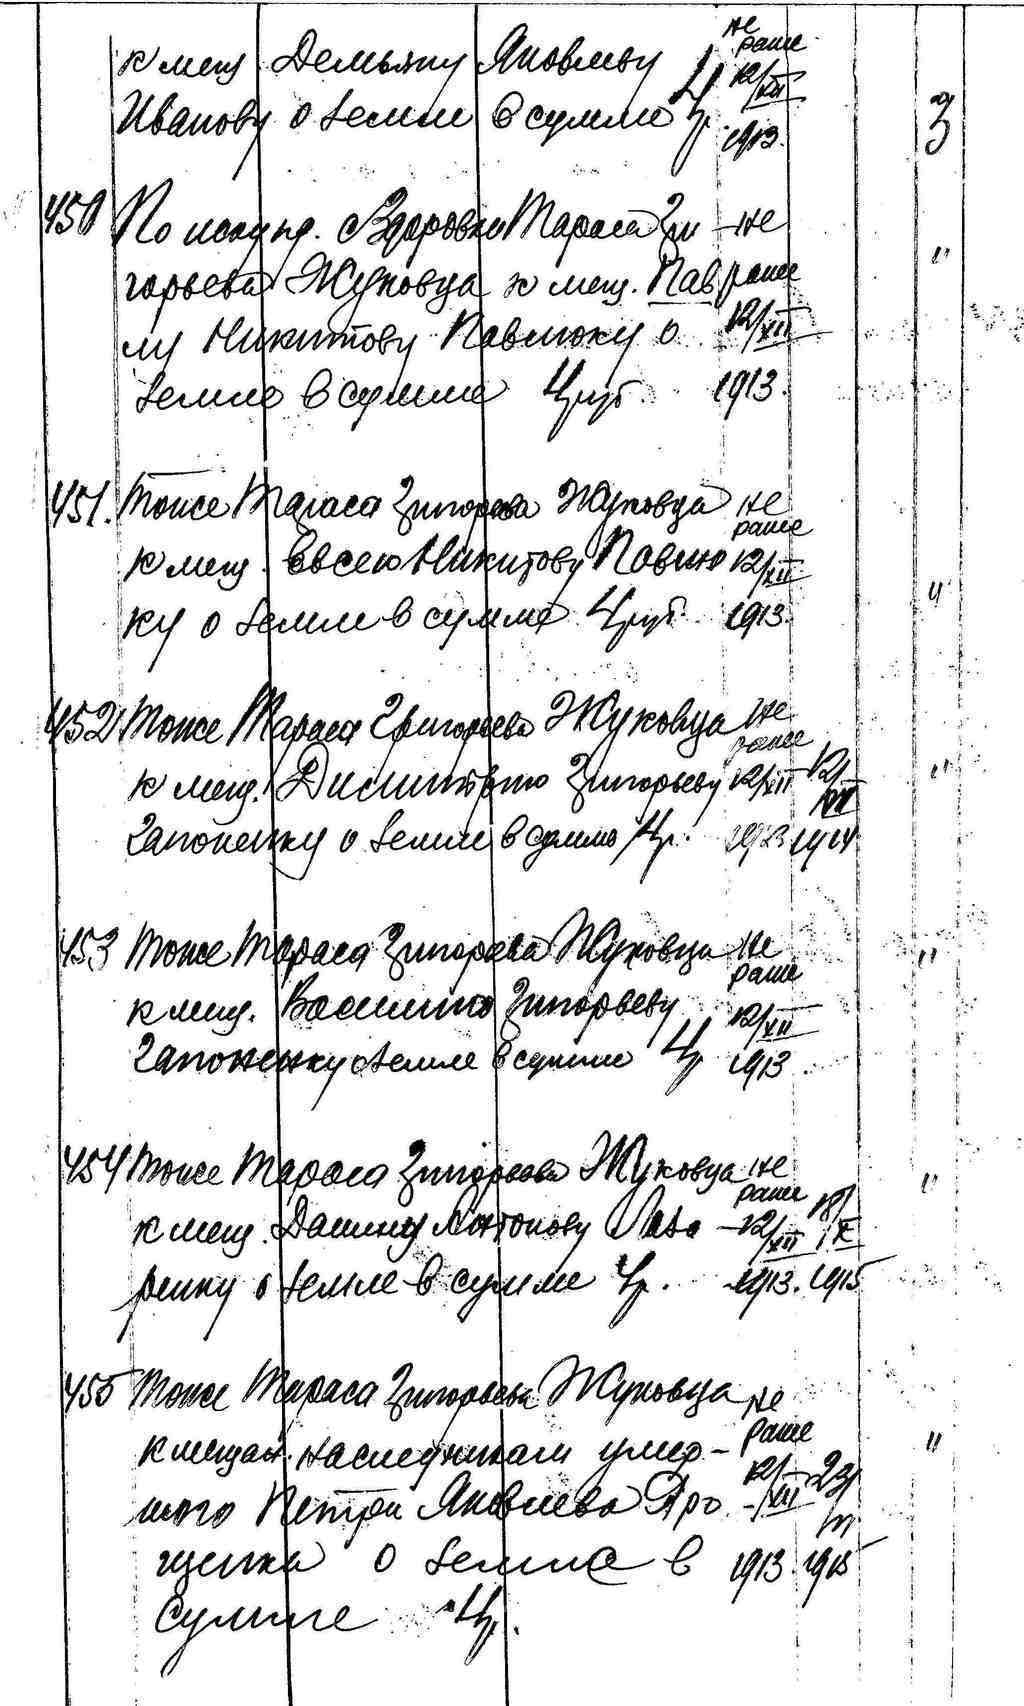 к мещ. Демьяну Яковлеву не ранее
Иванову о земле в сумме 4 р. 12/XII 1913. 3
450 По иску кр. Тараса Гри- не
горьева Жуковца к мещ. Пав ранее "
лу Никитову Павлюку о 12/XII
земле в сумме 4 руб. 1913.
451. Тоже Тараса Григорьева Жуковца не ранее
к мещ. Евсею Никитову Павлю 12/XII
ку о земле в сумме 4 руб. 1913. "
452 Тоже Тараса Григорьева Жуковца не ранее
к мещ. Димитрию Григорьеву 12/XII 12/ "
Гапоненку о земле в сумме 4 р. 1913 1914
453 Тоже Тараса Григорьева Жуковца не ранее "
к мещ. Василию Григорьеву 12/XII
Гапоненку о земле в сумме 4 р. 1913
454 Тоже Тараса Григорьева Жуковца не ранее "
к мещ. Антонову Лаза 12/XII 18/X
ренку о земле в сумме 4 р. 1913. 1915
455 Тоже Тараса Григорьева Жуковца не
к мещан. наследникам умер- ранее "
шаго Петра Яковлева 12/XII 23/
о земле в 1913 1915
сумме 4 р.